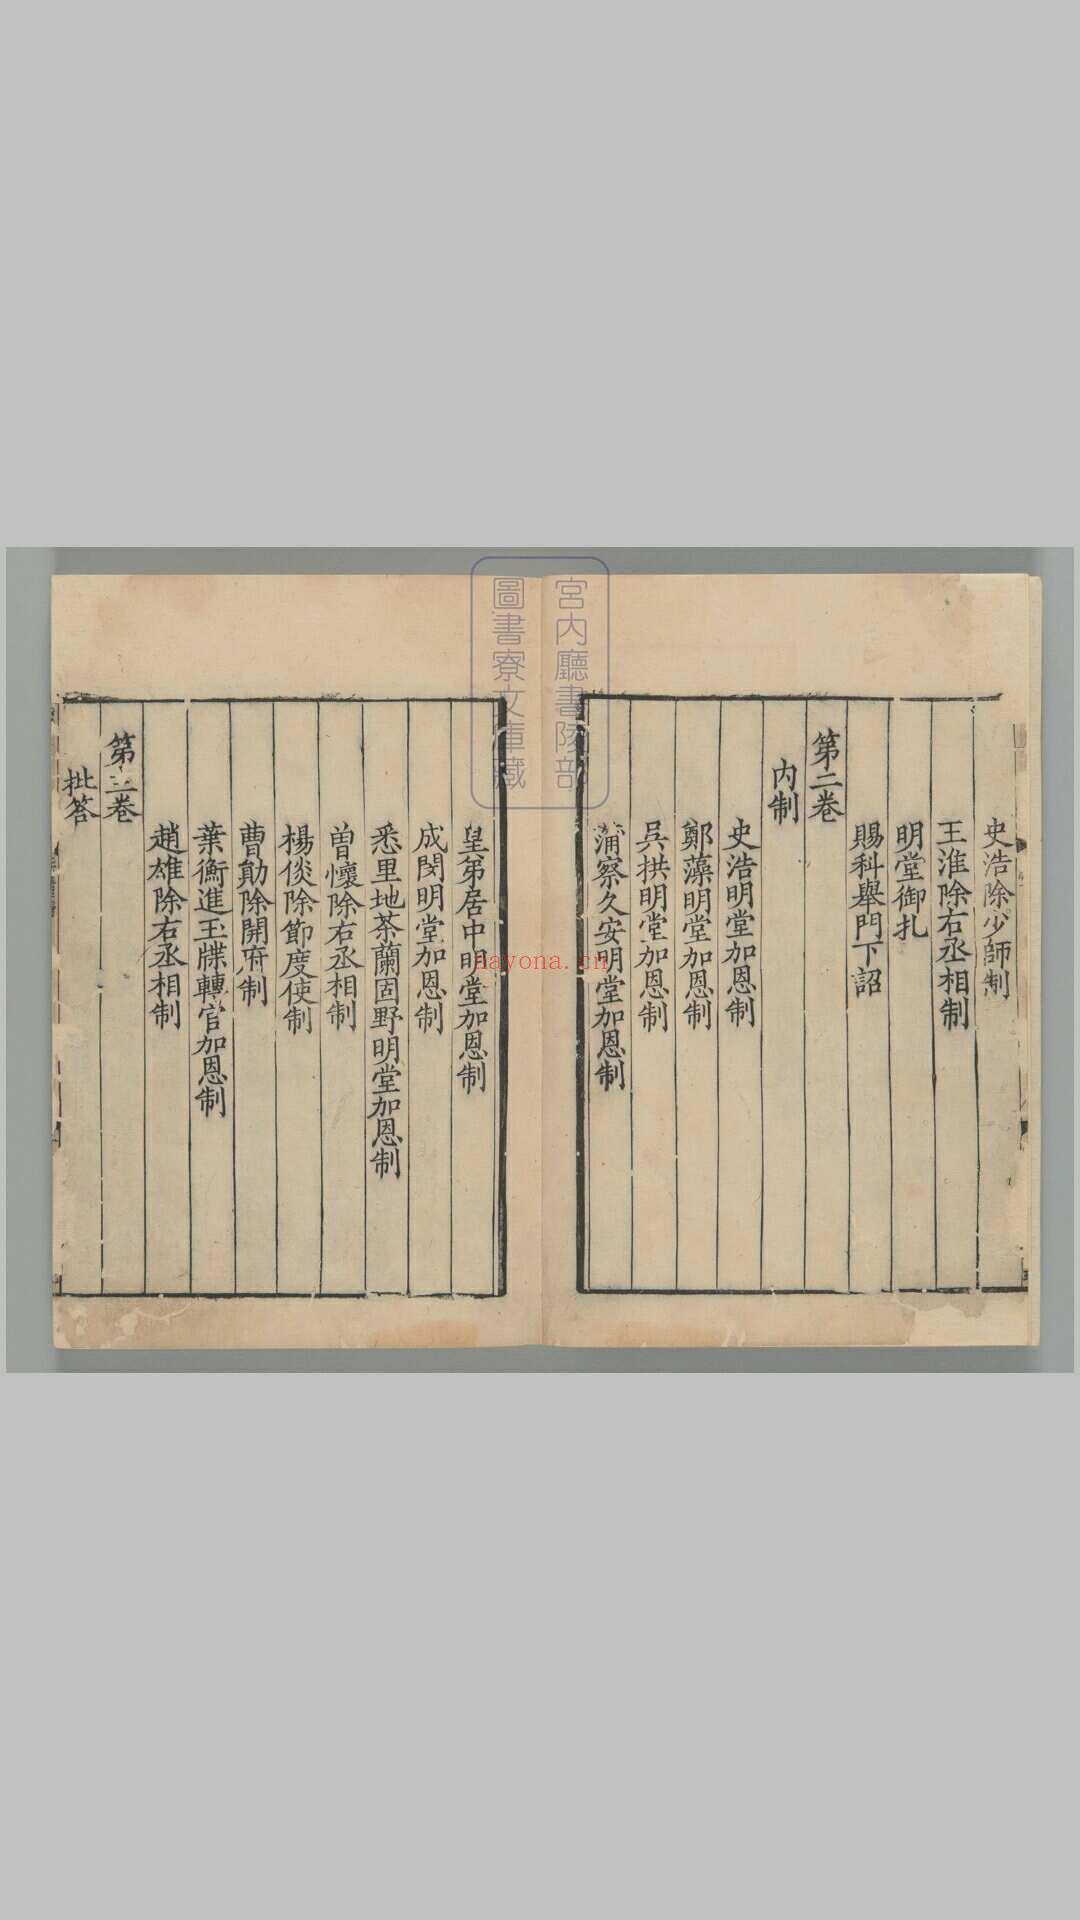 史浩除少師制
王淮除右丞相制
明堂御扎
賜科舉門下詔
第二卷
内制
史浩明堂加恩制
鄭藻明堂加恩制
吳拱明堂加恩制
蒲察久安明堂加恩制
皇弟居中明堂加恩制
成閔明堂加恩制
悉里地茶蘭固野明堂加恩制
曾懷除右丞相制
楊倓除節度使制
曹勛除開府制
葉衡進玉牒轉官加恩制
趙雄除右丞相制
第三卷
批答
宮内廳書陵部
圖書寮文庫藏
nayona.cn